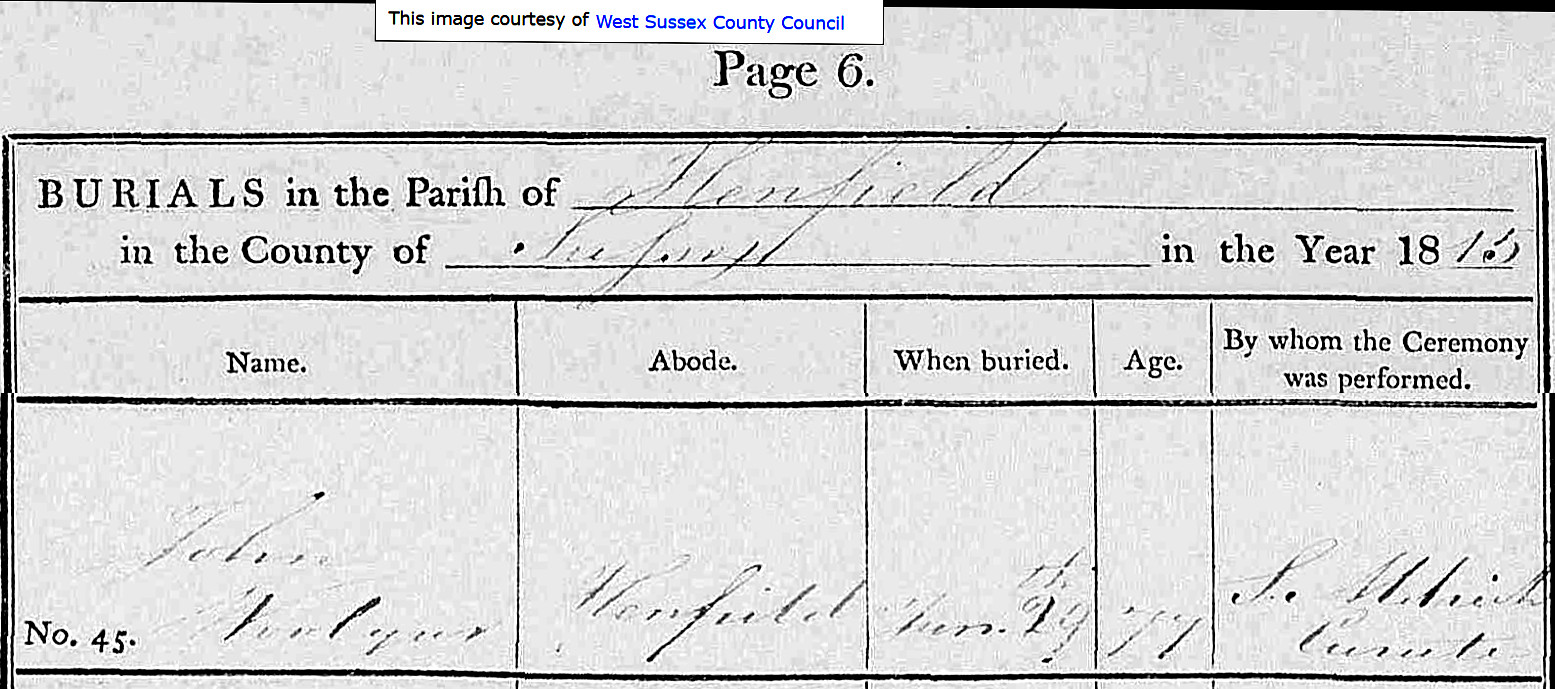 This image courtesy of West Sussex County Council
Page 6.
BURIALS in the Pariſh of Henfield
in the County of Suſsex in the Year 1815
Name. Abode. When buried. Age. By whom the Ceremony
was performed.
John
No. 45. Henfield 29 77
Curate